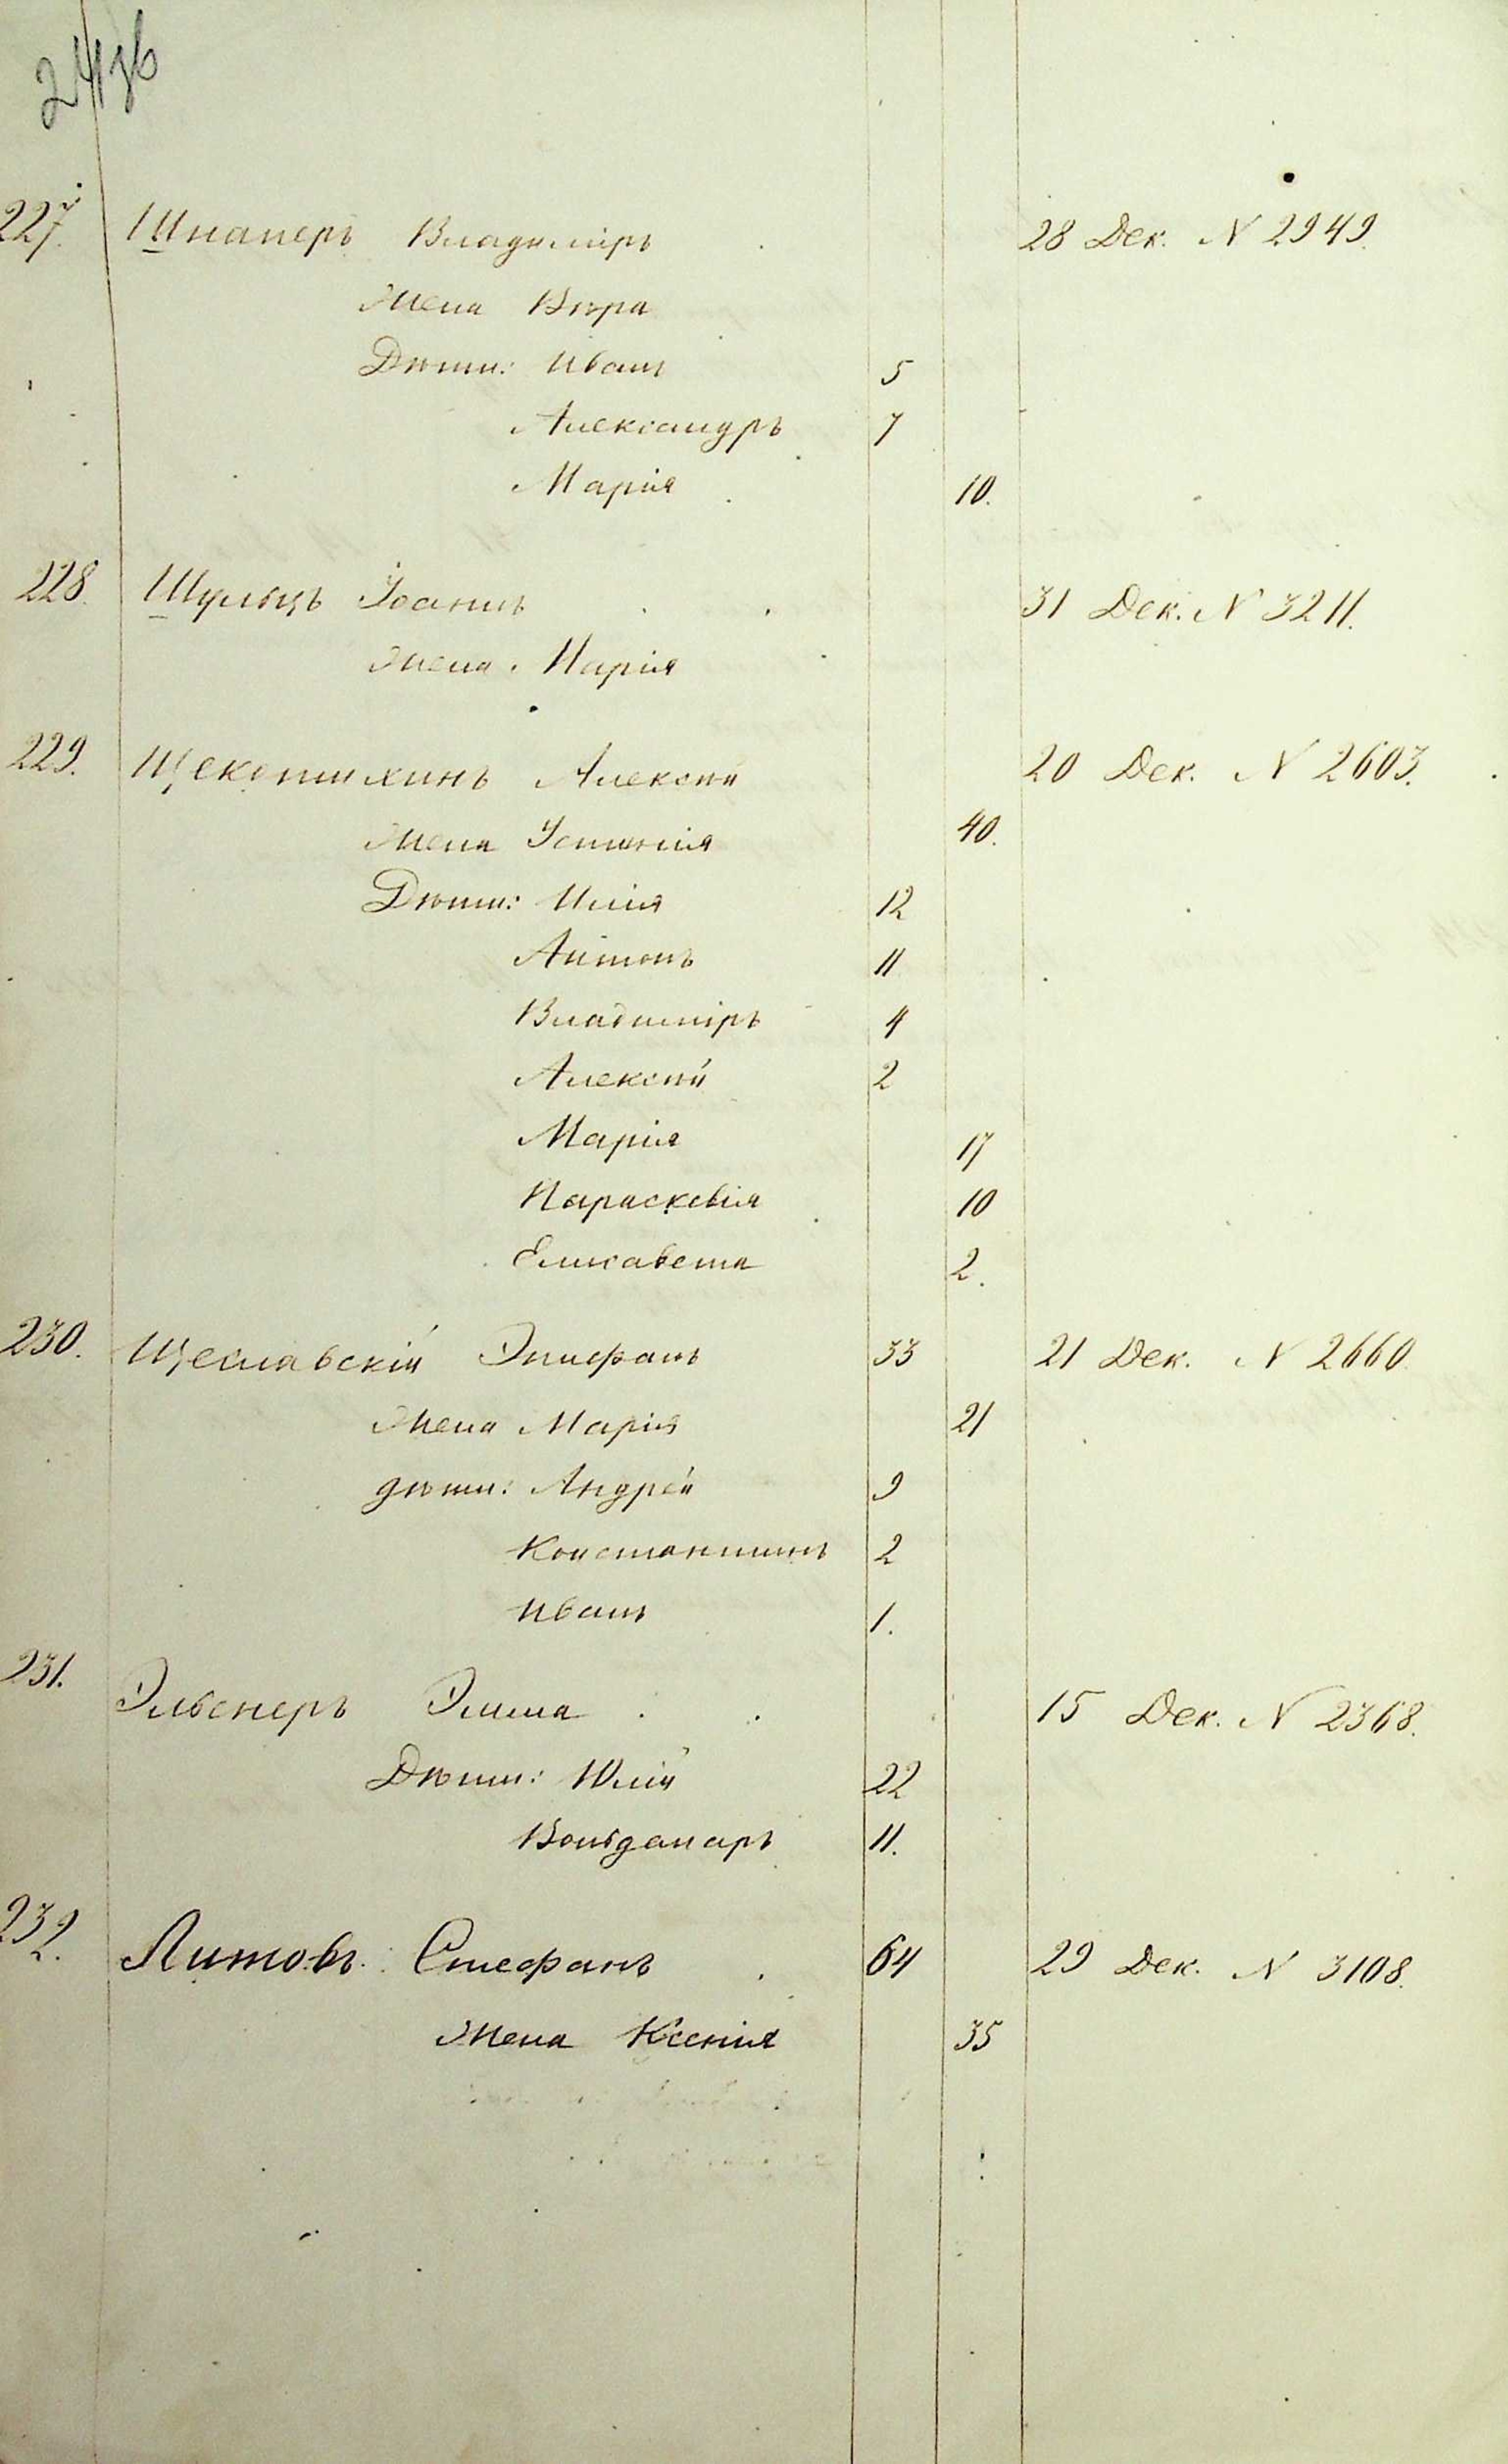 227. Шнаперъ Владиміръ 28 Дек. N 2949.
Жена Вѣра
Дѣти: Иванъ 5
Александръ 7
Марія 10.
228. Шульцъ Іоаннъ 31 Дек. N 3211.
Жена Марія
229. Щекотихинъ Алексѣй 20 Дек. N 2603.
Жена Устинія 40.
Дѣти: Илія 12
Антонъ 11
Владиміръ 4
Алексѣй 2
Марія 17
Параскевія 10
Елисавета 2.
230. Щеславскій Эпифанъ 33 21 Дек. N 2660.
Жена Марія 21
дѣти: Андрей 9
Константинъ 2
Иванъ 1.
231. Эльснеръ Эмма 15 Дек. N 2368.
Дѣти: Юлій 22
Вольдамаръ 11.
232. Литовъ Стефанъ 64 29 Дек. N 3108.
Жена Ксенія 35